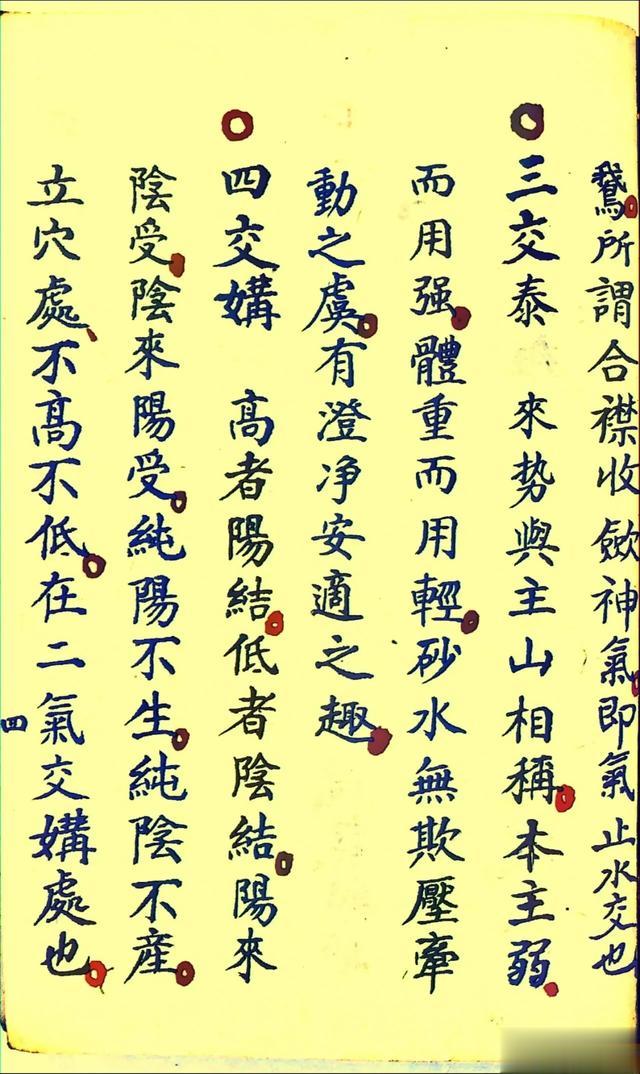 鵞所謂合襟收歛神氣即氣止水交也
三交泰 來势與主山相稱本主弱
而用强體重而用輕砂水無欺壓牽
動之虞有澄净安適之趣
四交媾 高者陽結低者陰結陽來
陰受陰來陽受純陽不生純陰不産
立穴處不高不低在二氣交媾處也
四